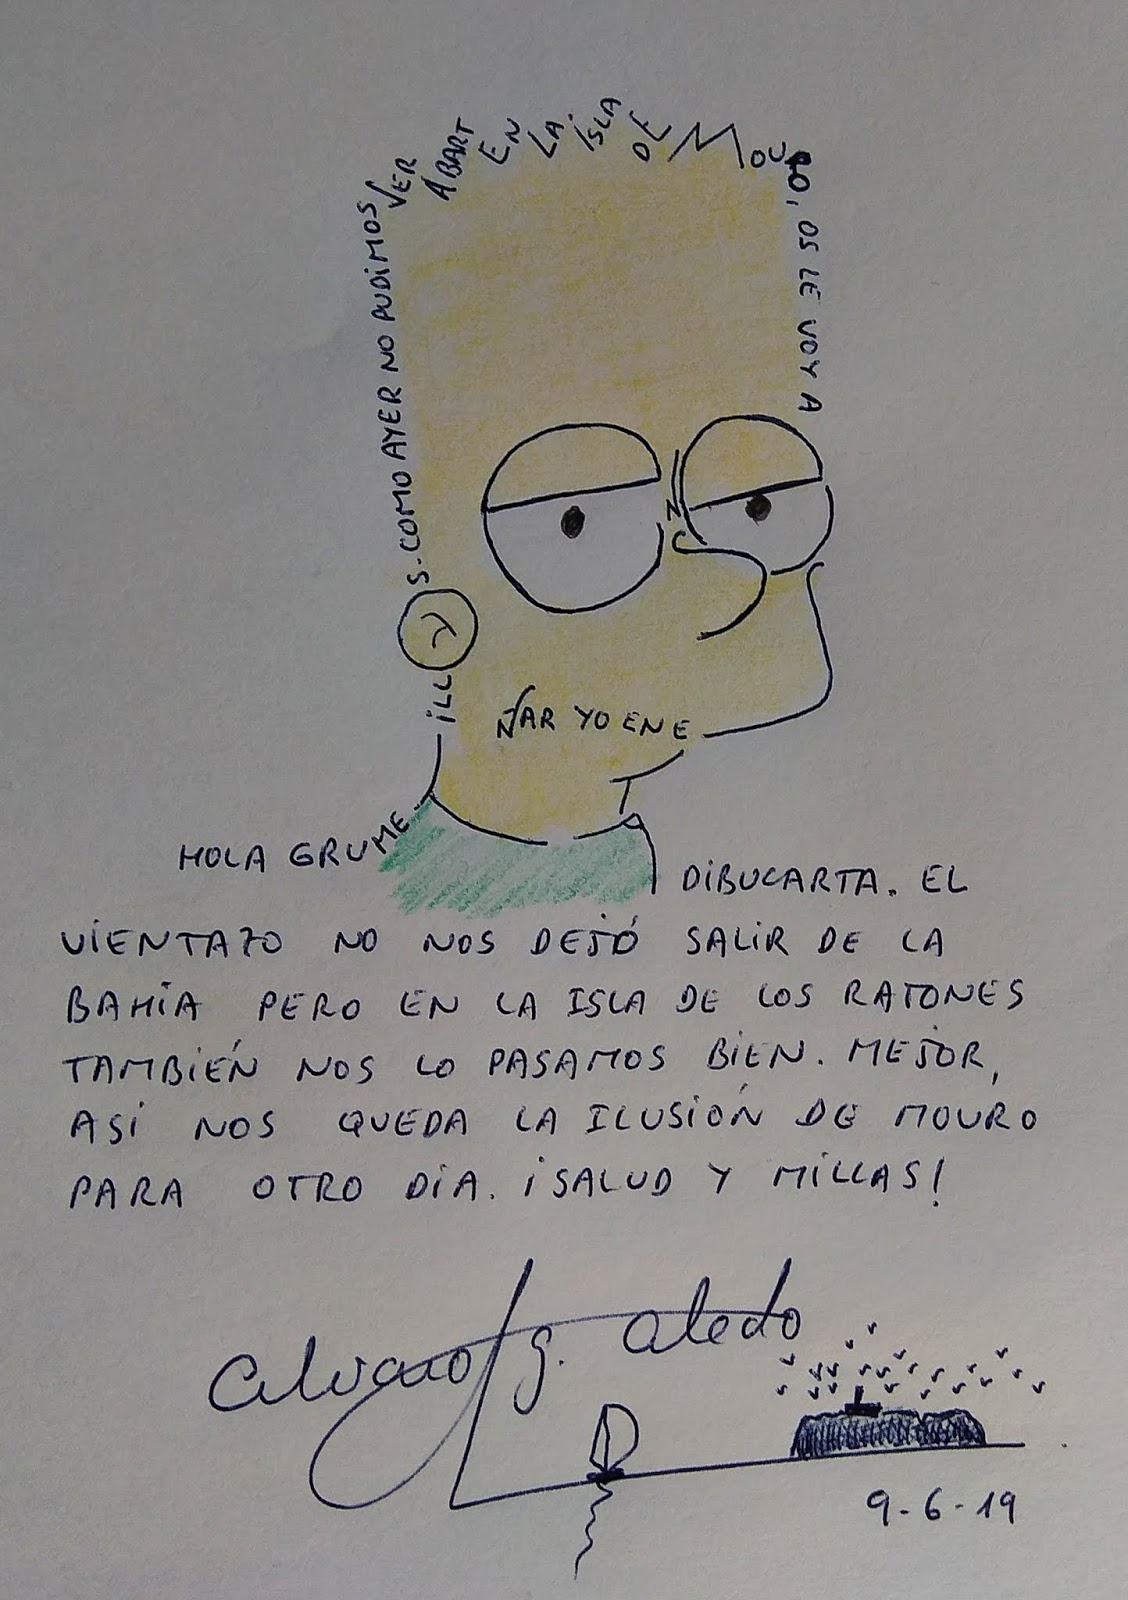 HOLA GRUME
ILL
S. COMO AYER NO PUDIMOS
VER A BART EN LA ISLA DE MOU
RO, OS LE VOY A
N
ÑAR YO EN E
DIBUCARTA. EL
VIENTAZO NO NOS DEJÓ SALIR DE LA
BAHÍA PERO EN LA ISLA DE LOS RATONES
TAMBIÉN NOS LO PASAMOS BIEN. MEJOR,
ASÍ NOS QUEDA LA ILUSIÓN DE MOURO
PARA OTRO DÍA. ¡SALUD Y MILLAS!
Alvaro G. Aledo
9-6-19